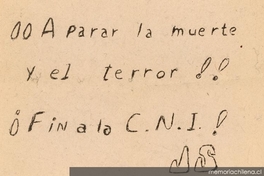 ¡¡A parar la muerte
y el terror!!
¡Fin a la C.N.I.!
JS
© memoriachilena.cl